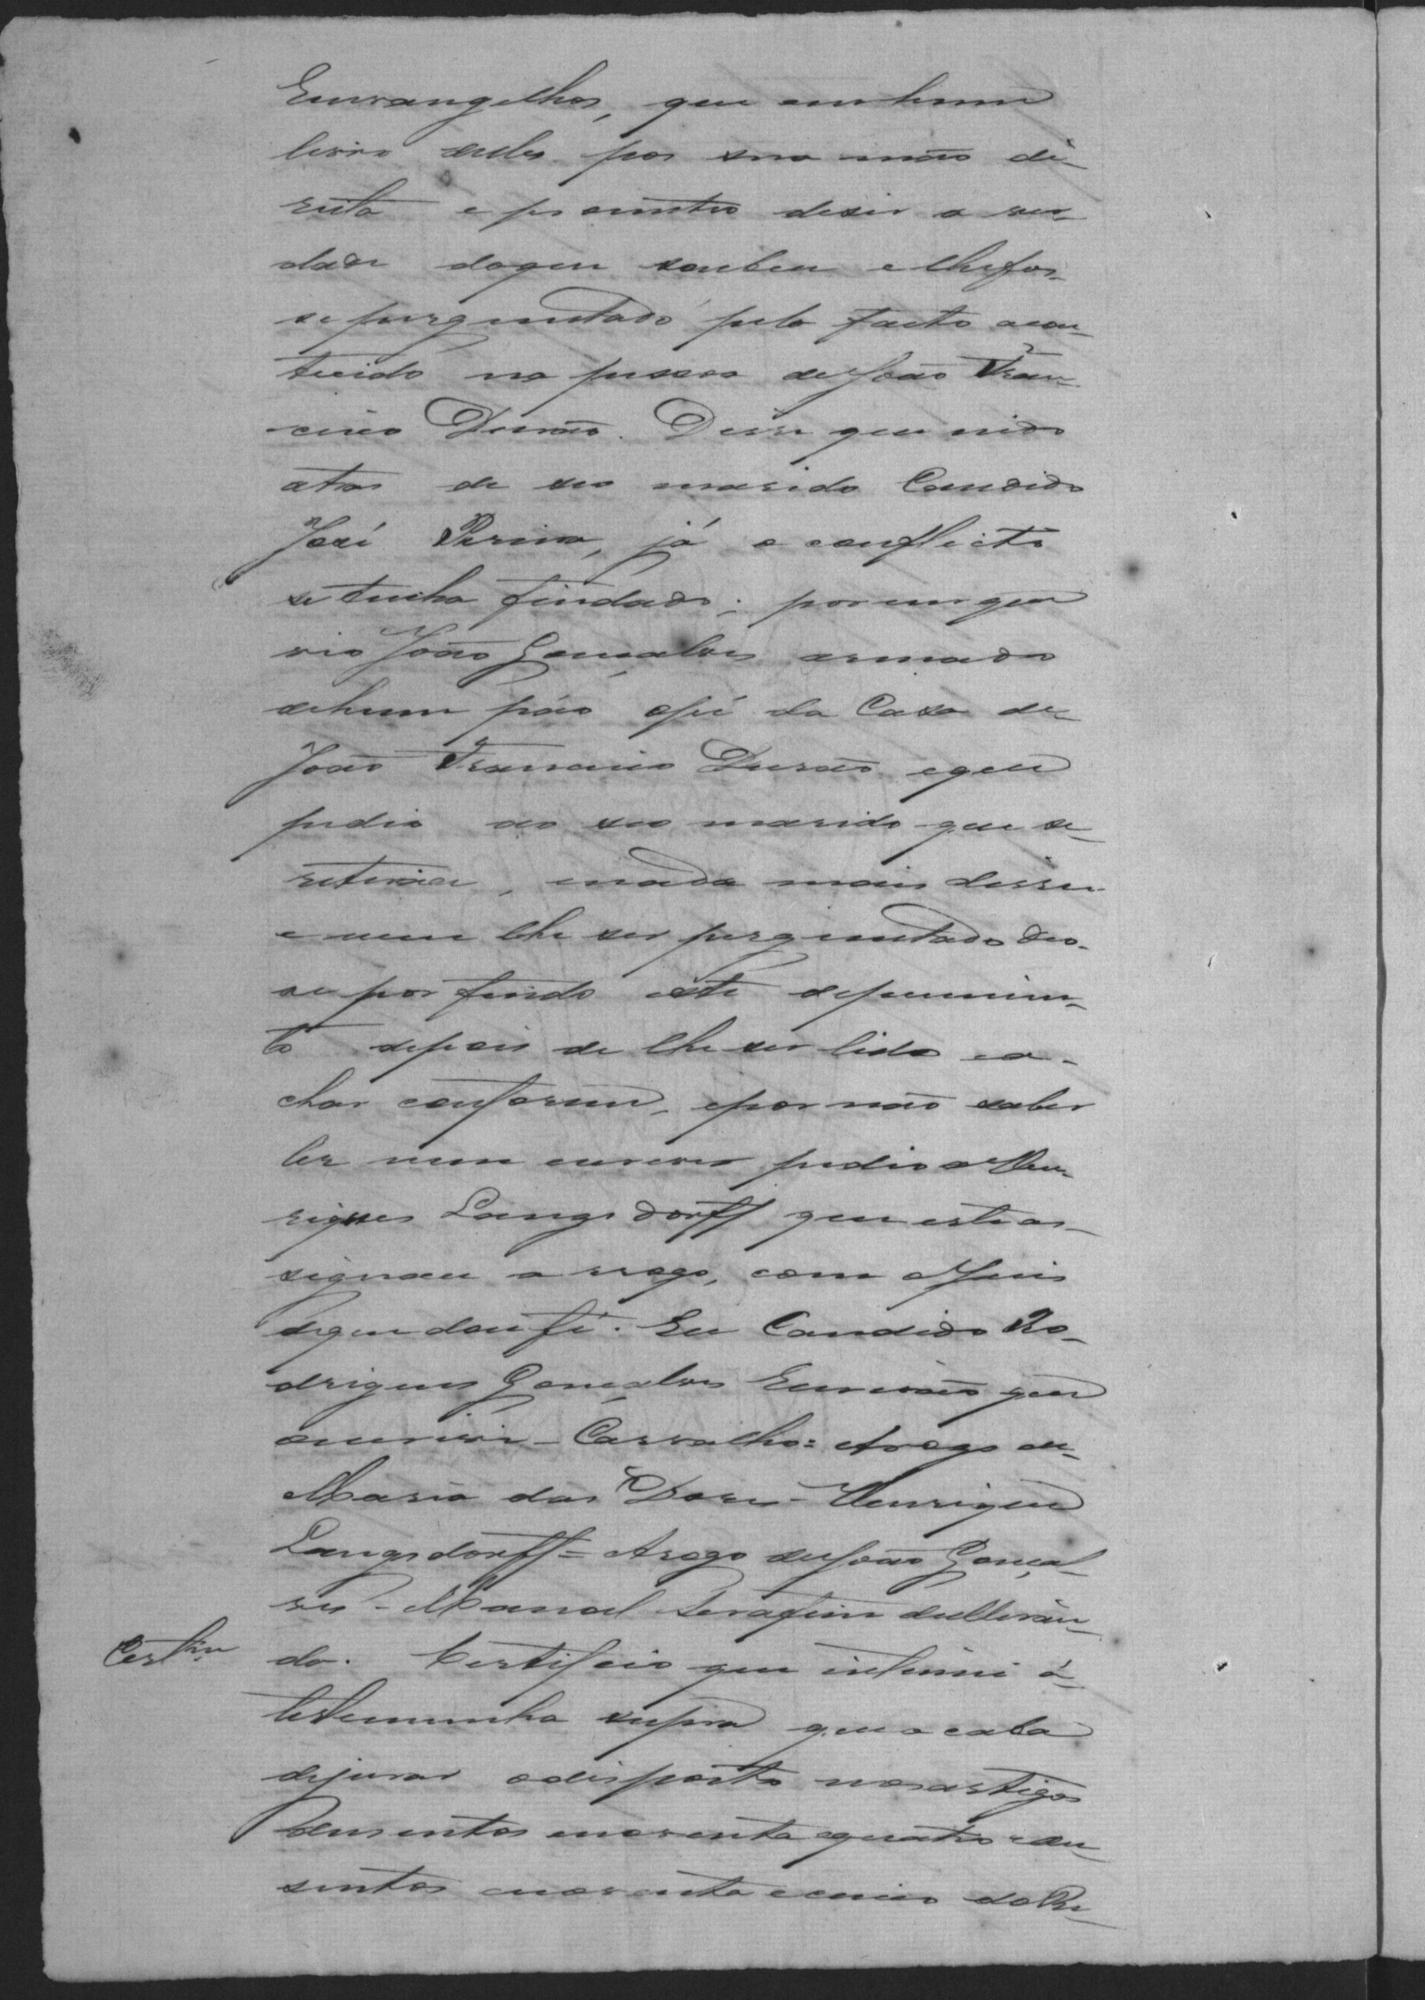 Euvangelhos, que em hum
livro delles por sua mão di-
reita e prometeu deser a ver-
dade doque soubeu e lhe fos-
se perguntado pelo facto acon-
tecido na pessoa de João Fran-
cisco Durão. Disse que indo
atras de seo marido Candido
José Pereira, já o conflicto
se tinha findado; porem que
vio João Gonçalves armado
dehum páo opé da Casa de
João Francisco Durão eque
pedio ao seo marido que se
retirace, enada mais disse
e nem lhe ser perguntado deo-
se por findo este depoimen-
to depois de lhe ser lido e a-
char conforme, epor não saber
ler nem escrever pedio a Hen-
riques Langsdorff que este as-
signou a rogo, com o Juis
deque dou fé. Eu Candido Ro-
drigues Gonçalves Escrivão que
o escrevi - Carvalho = Arogo de
Maria das Dores - Henrique
Langsdorff = Arogo de João Gonçal-
ves - Manoel Serafim de Miran-
da. Certifico que intimei á
testemunha supra que acaba
dejurar odisposto nos artigos
dusentos enoventa equatro e du-
sentos enoventa e cinco do Re-